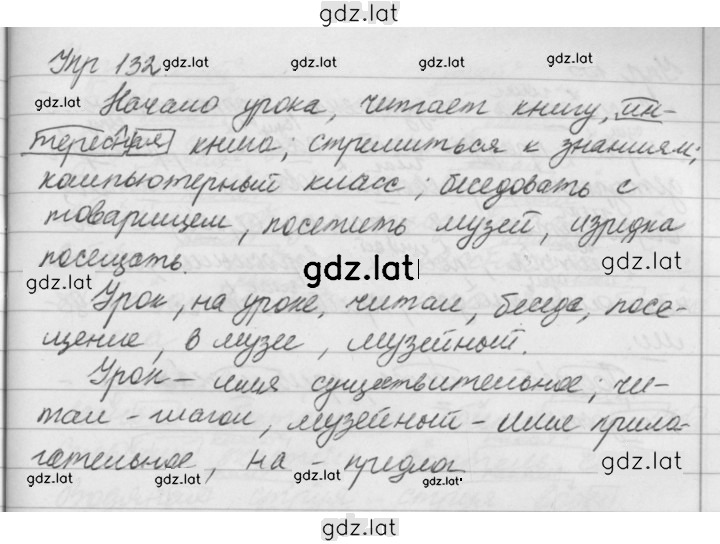 gdz.lat
Упр 132
gdz.lat gdz.lat gdz.lat
gdz.lat Начало урока, читает книгу, ин-
тересная книга; стремиться к знаниям;
компьютерный класс; беседовать с
товарищем, посетить музей, изредка
посещать.
gdz.lat gdz.lat gdz.lat
Урок, на уроке, читал, беседа, посе-
щение, в музее, музейный.
Урок – имя существительное; чи-
тал – глагол, музейный – имя прила-
гательное, на – предлог
gdz.lat
gdz.lat gdz.lat
gdz.lat